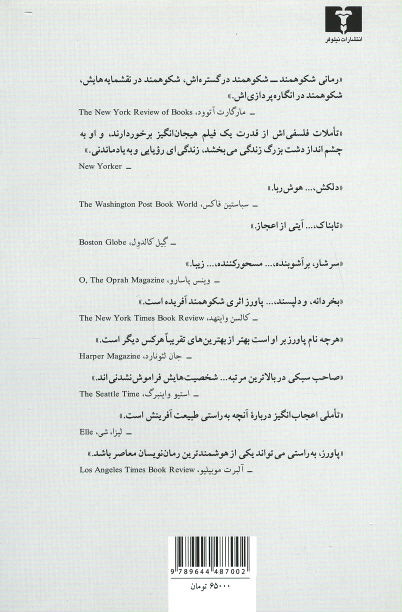 انتشارات نیلوفر
«رمانی شکوهمند ــ شکوهمند در گستره‌اش، شکوهمند در نقشمایه‌هایش،
شکوهمند در انگاره‌پردازی‌اش.»
ــ مارگارت آتوود، The New York Review of Books
«تأملات فلسفی‌اش از قدرت یک فیلم هیجان‌انگیز برخوردارند، و او به
چشم‌انداز دشت بزرگ زندگی می‌بخشد، زندگی‌ای رؤیایی و به‌یادماندنی.»
ــ New Yorker
«دلکش،... هوش‌ربا.»
ــ سباستین فاکس، The Washington Post Book World
«تابناک،... آیتی از اعجاز.»
ــ گیل کالدول، Boston Globe
«سرشار، برآشوبنده،... مسحورکننده،... زیبا.»
ــ وینس پاسارو، O, The Oprah Magazine
«بخردانه، و دلپسند،... پاورز اثری شکوهمند آفریده است.»
ــ کالسن وایتهد، The New York Times Book Review
«هرچه نام پاورز بر او است بهتر از بهترین‌های تقریباً هرکس دیگر است.»
ــ جان لئونارد، Harper Magazine
«صاحب سبکی در بالاترین مرتبه... شخصیت‌هایش فراموش‌نشدنی‌اند.»
ــ استیو واینبرگ، The Seattle Time
«تأملی اعجاب‌انگیز دربارهٔ آنچه به‌راستی طبیعت آفرینش است.»
ــ لیزا، شی، Elle
«پاورز، به‌راستی می‌تواند یکی از هوشمندترین رمان‌نویسان معاصر باشد.»
ــ آلبرت موبیلیو، Los Angeles Times Book Review
9 789644 487002
۶۵۰۰۰ تومان